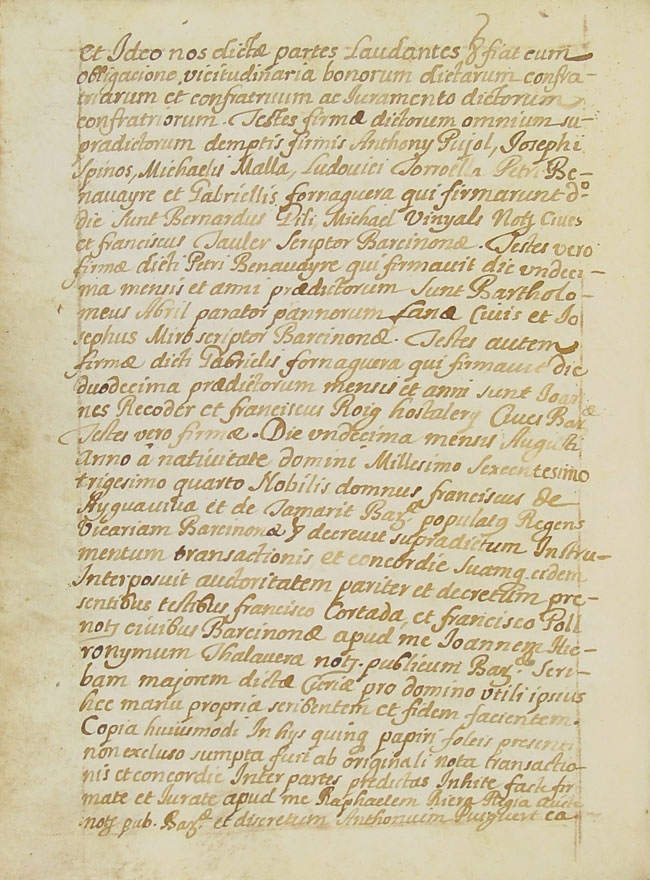 et Ideo nos dictæ partes Laudantes & fiat cum
obligacione vicitudinaria bonorum dictarum confra-
triarum et confratrium ac Iuramento dictorum
confratriorum. Testes firmæ dictorum omnium su-
pradictorum demptis firmis Anthony Pujol, Josephi
Spinos, Michaelis Malla, Ludovici Torroella Petri Be-
navayre et Gabriellis fornaguera qui firmarunt do
die sunt Bernardus Dili Michael Vinyals Notj Cives
et franciscus Tauler Scriptor Barcinonæ. Testes vero
firmæ dicti Petri Benavayre qui firmavit die vndeci-
ma mensis et anni prædictorum sunt Bartholo-
meus Abril parator pannorum lanæ Civis et Io
sephus Miro scriptor Barcinonæ. Testes autem
firmæ dicti Gabrielis fornaguera qui firmavit die
duodecima prædictorum mensis et anni sunt Ioan
nes Recoder et franciscus Roig hostalerij Cives Bar.æ
Testes vero firmæ. Die vndecima mensis Augusti
Anno à nativitate domini Millesimo sexcentesimo
trigesimo quarto Nobilis domnus franciscus de
Ayguaviva et de Tamarit Bar.æ populatg Regens
Vicariam Barcinonæ decrevit supradictum Instru-
mentum transactionis, et concordie suamq. eidem
Interposuit auctoritatem pariter et decretum pre-
sentibus testibus francisco Cortada, et francisco Poll
notj civibus Barcinonæ apud me Ioannem Hie-
ronymum Thalavera notj. publicum Bar.æ Scri-
bam majorem dictæ Curiæ pro domino vtili ipsius
hec manu propria scribentem et fidem facientem.
Copia huiusmodi In hys quinq papiri foleis presenti
non excluso sumpta fuit ab originali nota transactio-
nis et concordie Inter partes predictas Inhite facte fir
mate et Iurate apud me Raphaelem Riera Regia aucte
notj pub. Bar.æ et discretum Anthonium Puigvert ea